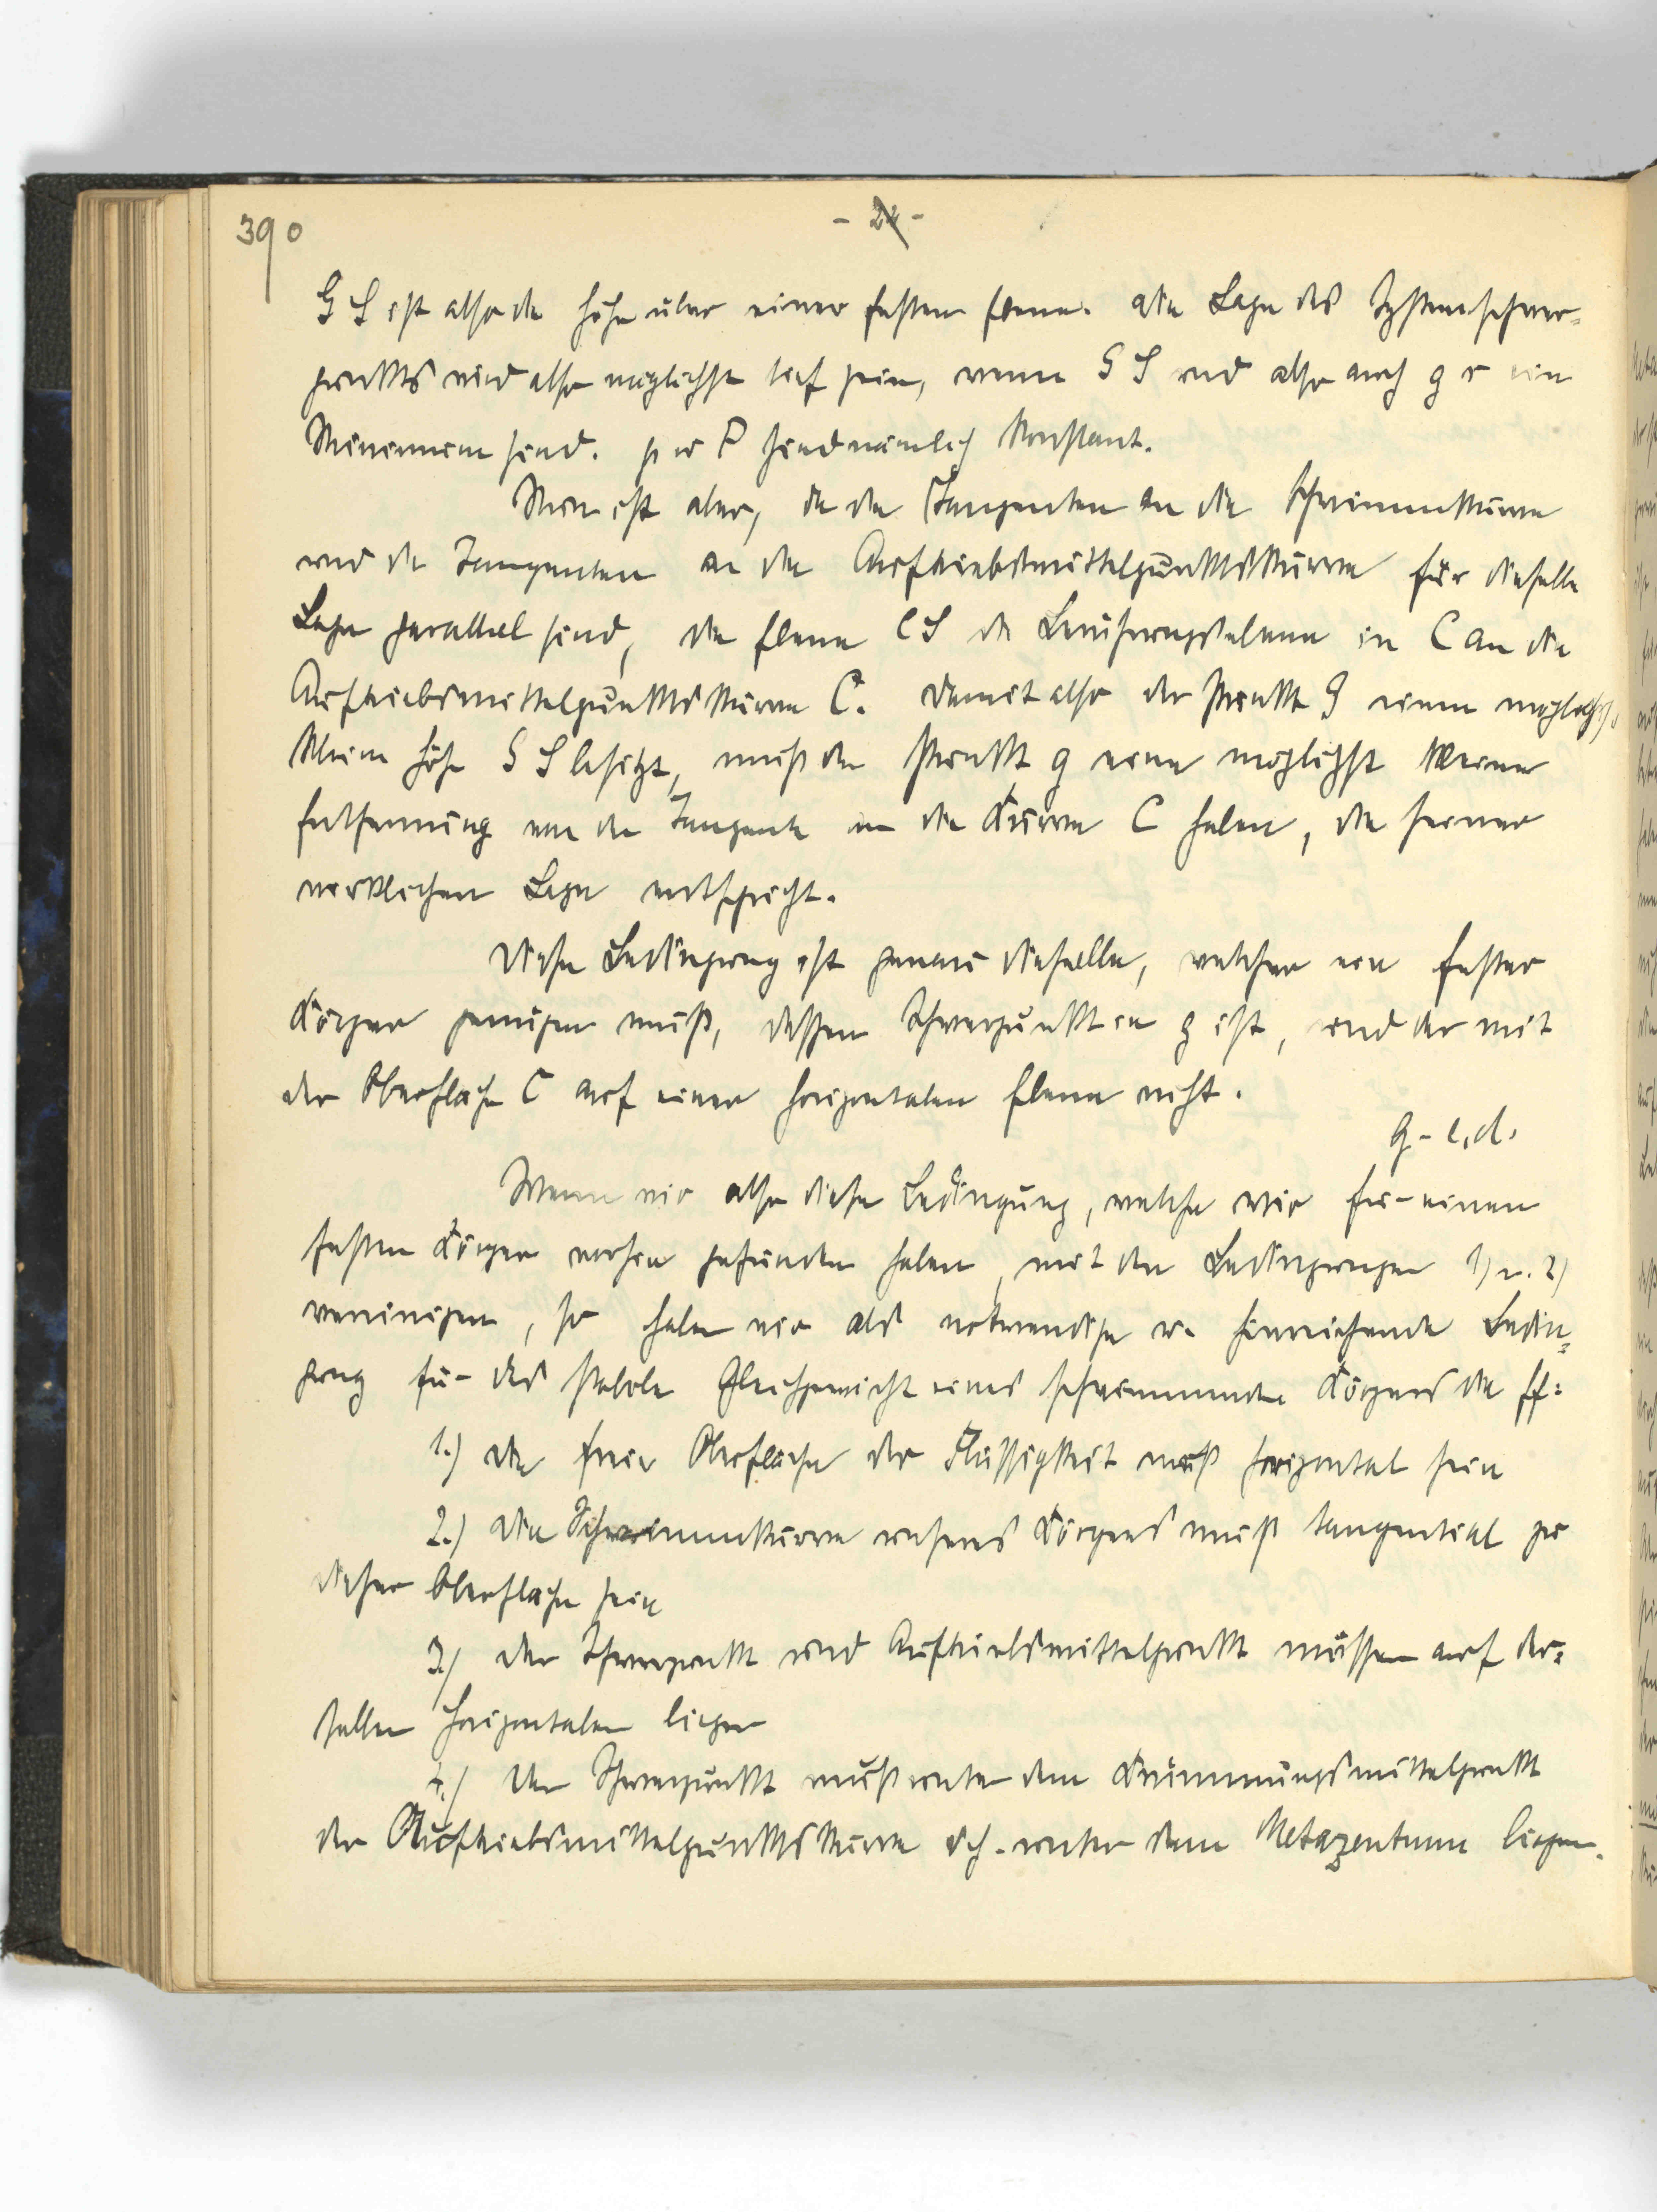 390
- 24 -
G S ist also die Höhe über einer festen Ebene. Die Lage des Systemschwer=
punkts wird also möglichst tief sein, wenn G S und also auch g r ein
Minimum sind. p u P sind nämlich konstant.
Nun ist aber, da die Tangenten an die Schwimmkurve
und die Tangenten an die Auftriebsmittelpunktskurve für dieselbe
Lage parallel sind, die Ebene C S die Berührungsebene in C an die
Auftriebsmittelpunktskurve C. Damit also der Punkt G eine möglichst
kleine Höhe G S besitzt, muß der Punkt g eine möglichst kleine
Entfernung von der Tangente an die Kurve C haben, die seiner
wirklichen Lage entspricht.
Diese Bedingung ist genau dieselbe, welcher ein fester
Körper genügen muß, dessen Schwerpunkt in g ist, und der mit
der Oberfläche C auf einer horizontalen Ebene ruht.
q-e.d.
Wenn wir also diese Bedingung, welche wir für einen
festen Körper vorhin gefunden haben, mit den Bedingungen 1) u. 2)
vereinigen, so haben wir als notwendige u. hinreichende Bedin=
gung für das stabile Gleichgewicht eines schwimmenden Körpers die ff:
1.) Die freie Oberfläche der Flüssigkeit muß horizontal sein
2.) Die Schwimmkurve unseres Körpers muß tangential zu
dieser Oberfläche sein
3.) Der Schwerpunkt und Auftriebsmittelpunkt müssen auf der=
selben Horizontalen liegen
4.) Der Schwerpunkt muß unter dem Krümmungsmittelpunkt
der Auftriebsmittelpunktskurve d.h. unter dem Metazentrum liegen.